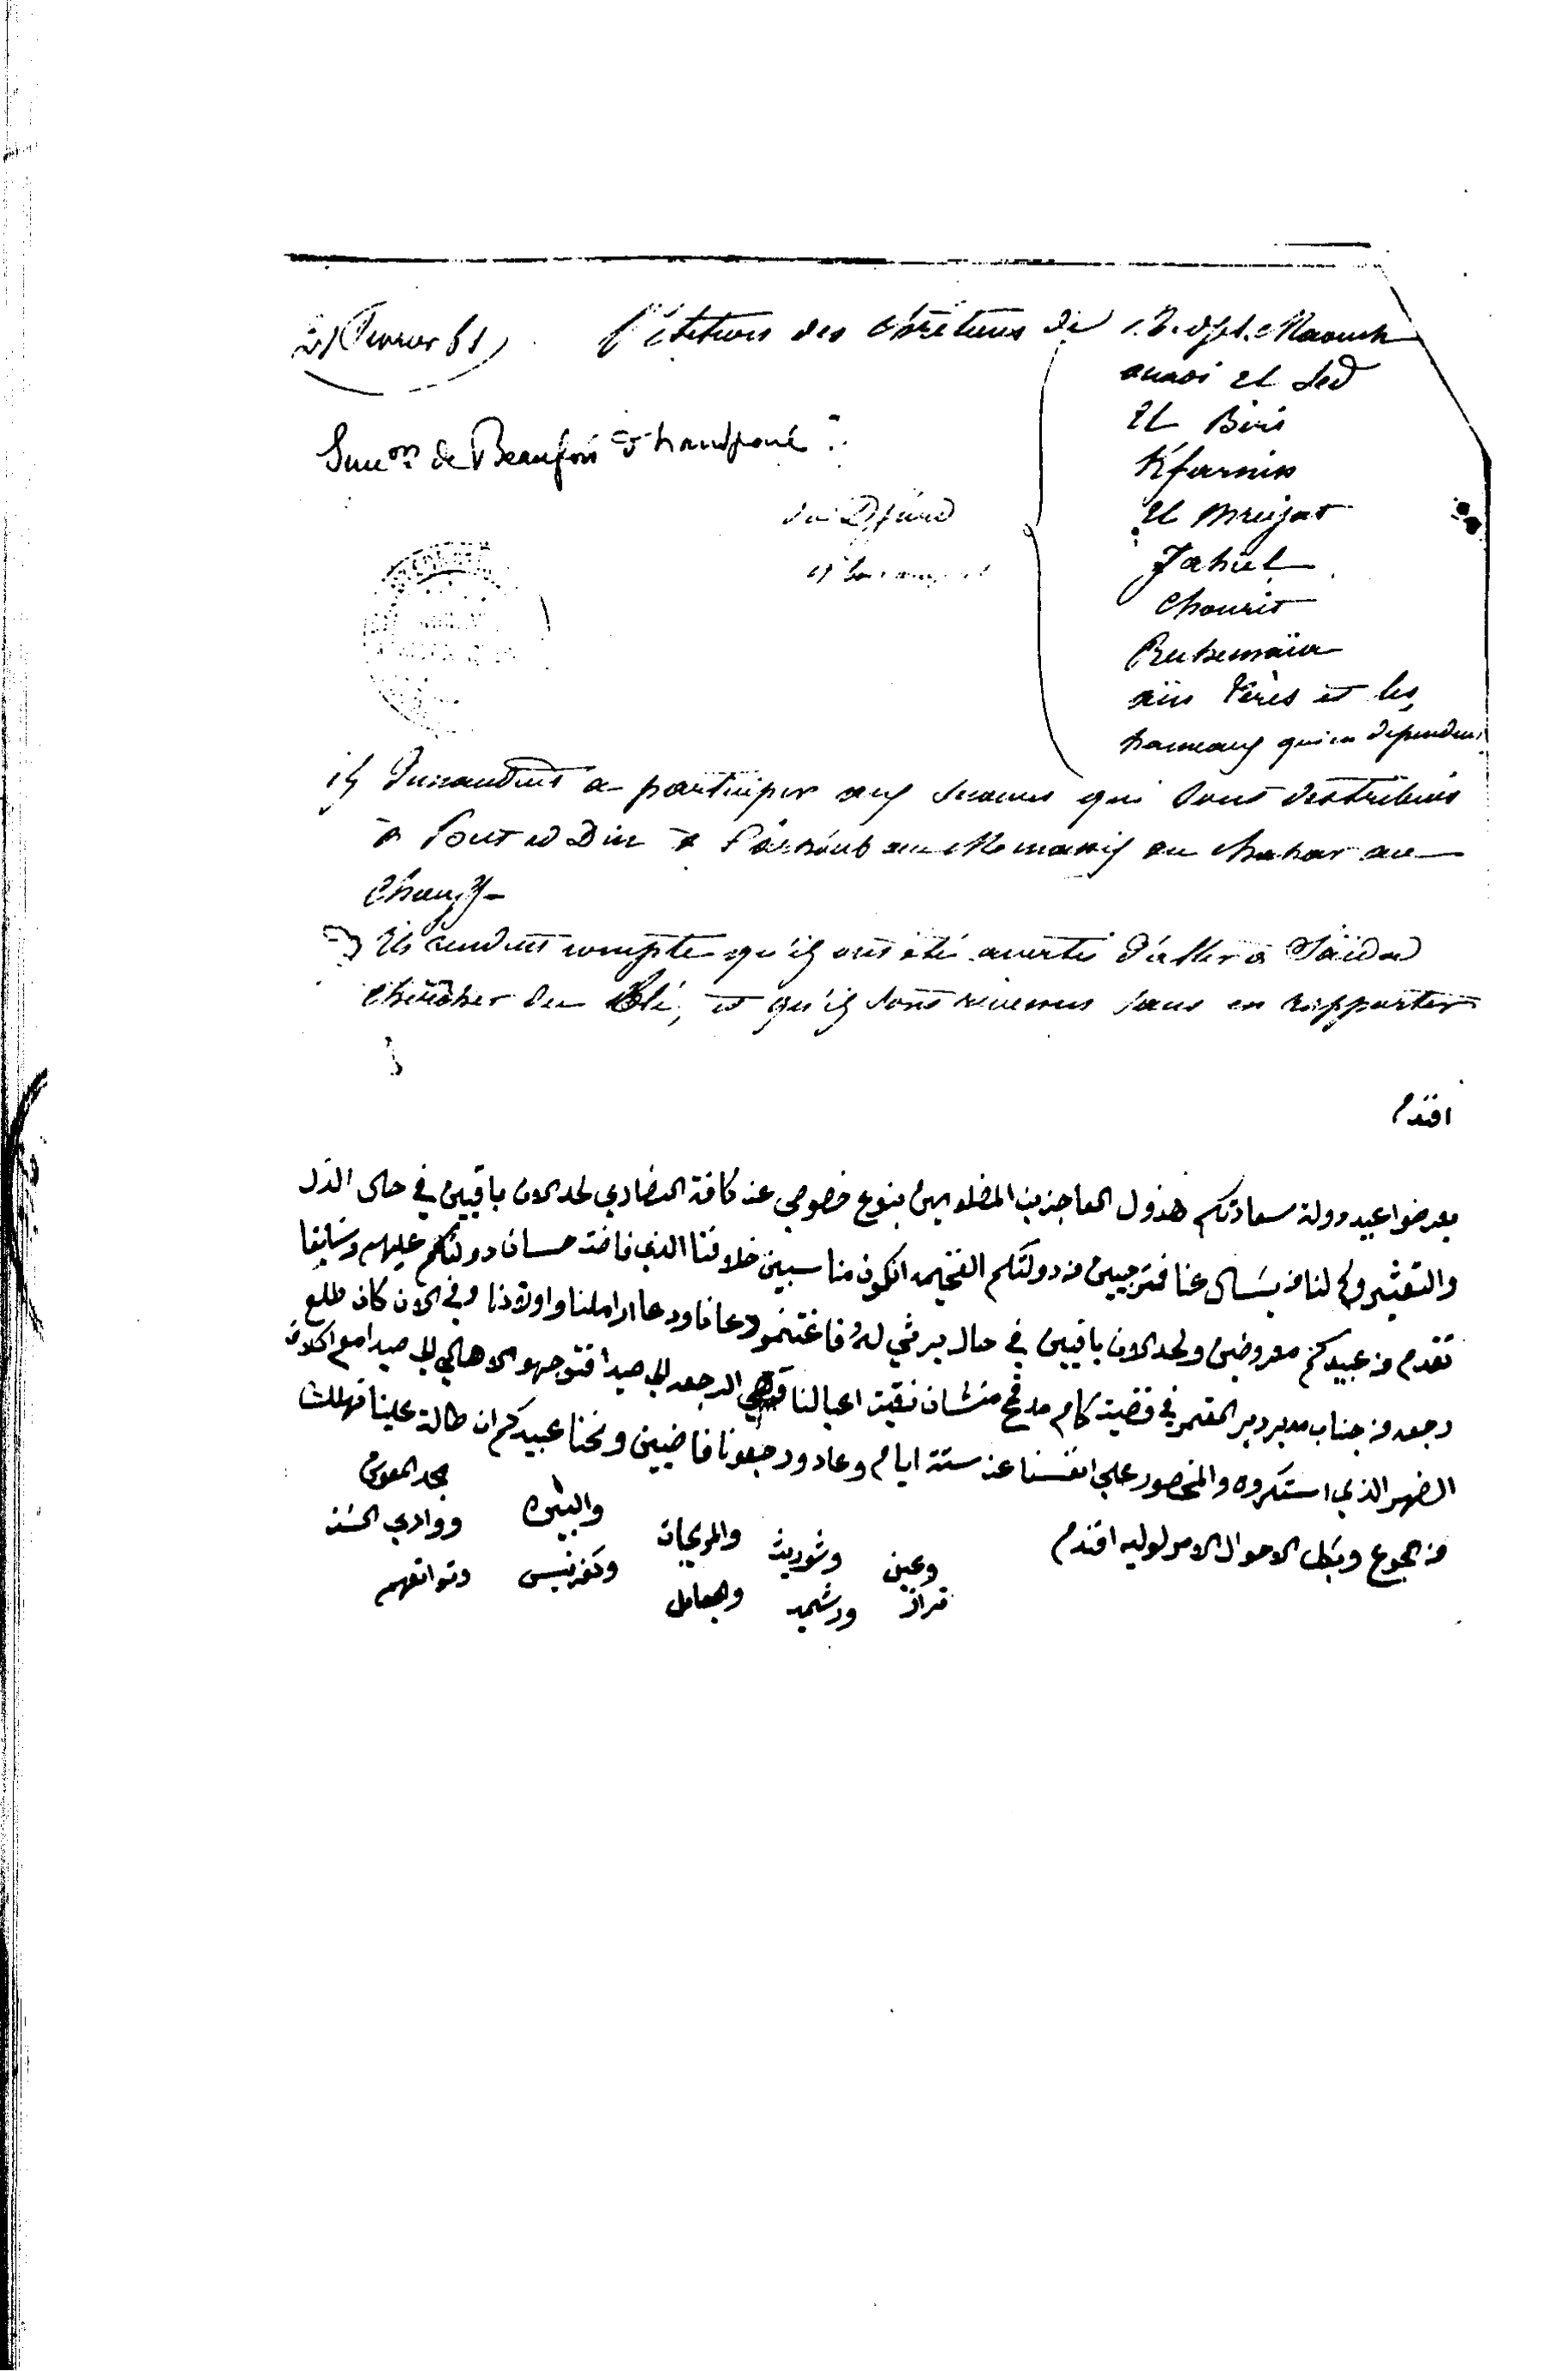 21 Fevrier 61
Pétition des Chrétiens de
Medjel Maouch
ouadi el Sed
El Biré
Kfarnis
El Mreijat
Jahiel
Chourit
Rechemaïa
aïn Térès et les
hameaux qui en dépendent
Succon de Beaufort d'hautpoul
du Djurd
ils demandent à participer aux secours qui sont distribués
à l'Arkoub au Menassif au Chahar au
Chouff
Ils rendent compte qu'ils ont été avertis d'aller à Saïda
chercher du Blé, et qu'ils sont revenus sans en rapporter
افندم
يعرضوا عبيد دولة سعادتكم هذول العاجزين المضلومين بنوع خصوصي عند كافة النضاري لحد الان باقيين في حال الذل
والتعثير ولا لنا من يسال عنا فمترجيين من دولتكم الفخيمه انكون مناسبين خلافنا الذي فاضة حسان دولتكم عليهم وسابقا
تقدم من عبيدكم معروضين ولحد الان باقيين في حال يرثي له فاغتنمو دعانا ودعا اراملنا واولادنا وفي الان كان طلع
رجعه من جناب مدير دير القمر في قضية كام مد قمح منشان نقية اعيالنا الرجعه الي صيدا فتوجهو الاهالي الي صيدا مع اكلاف
الضهر الذي استكروه والمخصور علي انفسنا عن ستة ايام وعادو رجعونا فاضيين ونحنا عبيدكم ان طالة علينا فهلكنا
من الجوع وبكل الاحوال الامر لوليه افندم
مجد المعوش
ووادي الست
وتوابعهم
والبيره
وكفرنيس
والمريجات
وشوريت
ورشميه
وعين
تراز